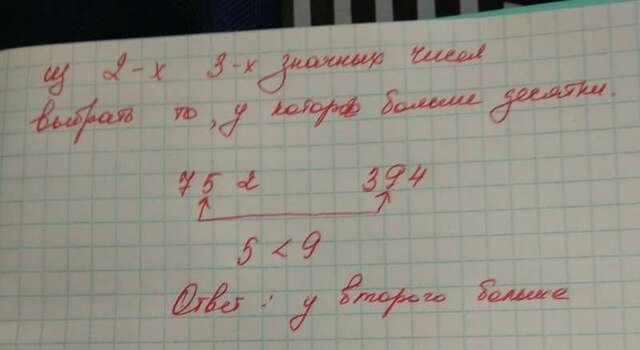 из 2-х 3-х значных чисел
выбрать то, у котор больше десятки.
752 394
5 < 9
Ответ: у второго больше